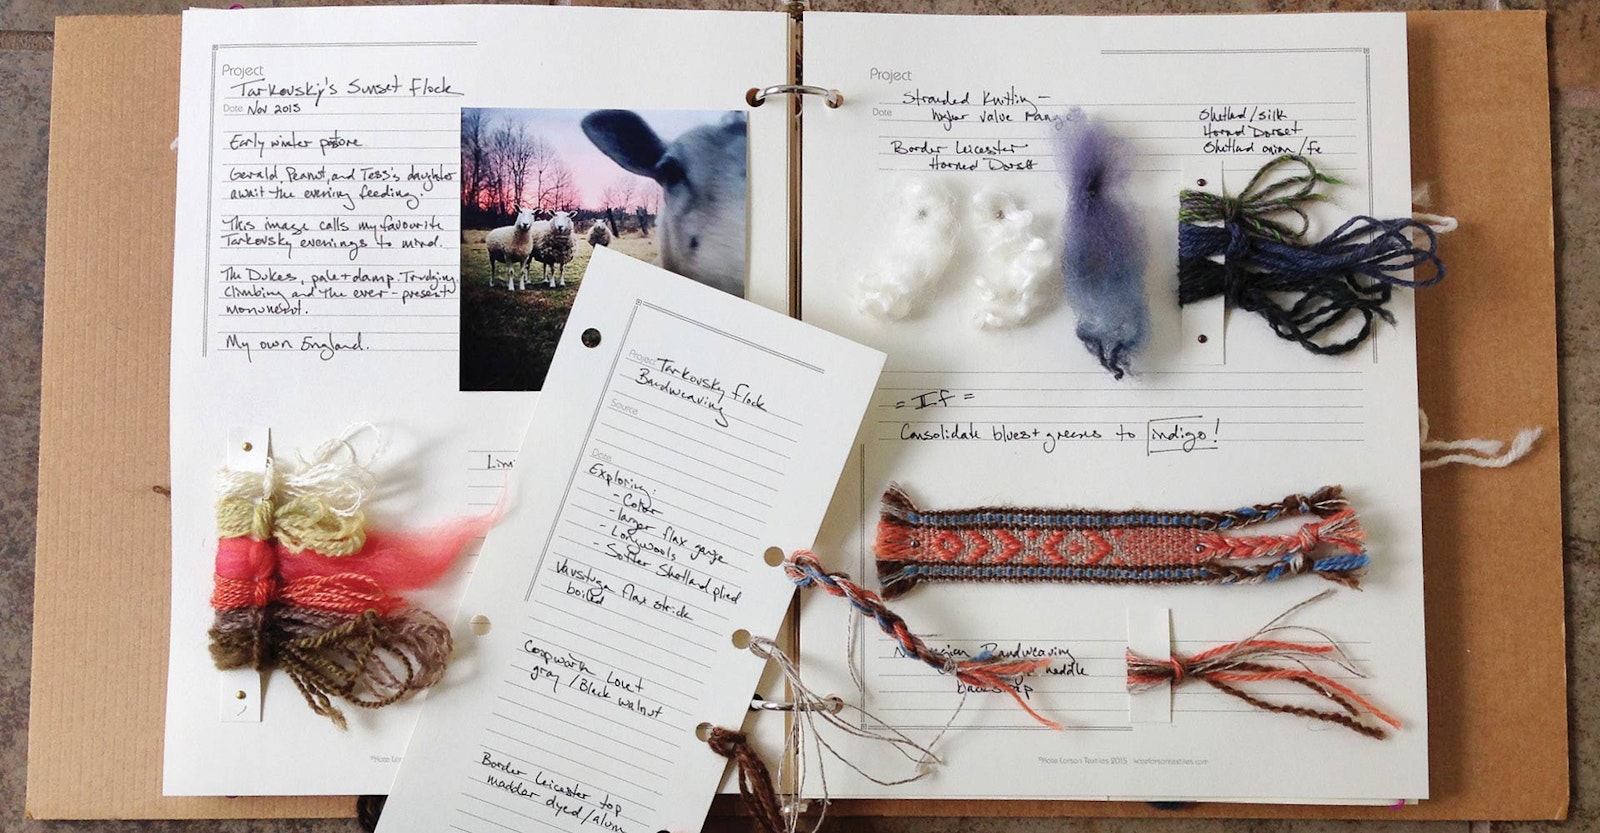 Project
Tarkovsky's Sunset Flock
Date Nov 2015
Early winter pasture.
Gerald, Peanut, and Tess's daughter
await the evening feeding.
This image calls my favourite
Tarkovsky evenings to mind.
The Dukes, pale + damp. Trudging,
climbing and the ever-present
monument.
My own England.
Limi
Project
Tarkovsky Flock
Bandweaving
Source
Date
Exploring:
- Color
- larger flax gauge
- Longwools
- Softer Shetland plied
Vavstuga flax strick
boiled
Coopworth Lovet
gray / Black walnut
Border Leicester top
madder dyed / alum
Project
Stranded Knitting -
higher value range
Date
Border Leicester
Horned Dorset
Shetland/silk
Horned Dorset
Shetland onion/fe
= If =
Consolidate blues + greens to indigo!
Norwegian Bandweaving
needle
backstrap
©Kate Larson Textiles 2015 katelarsontextiles.com